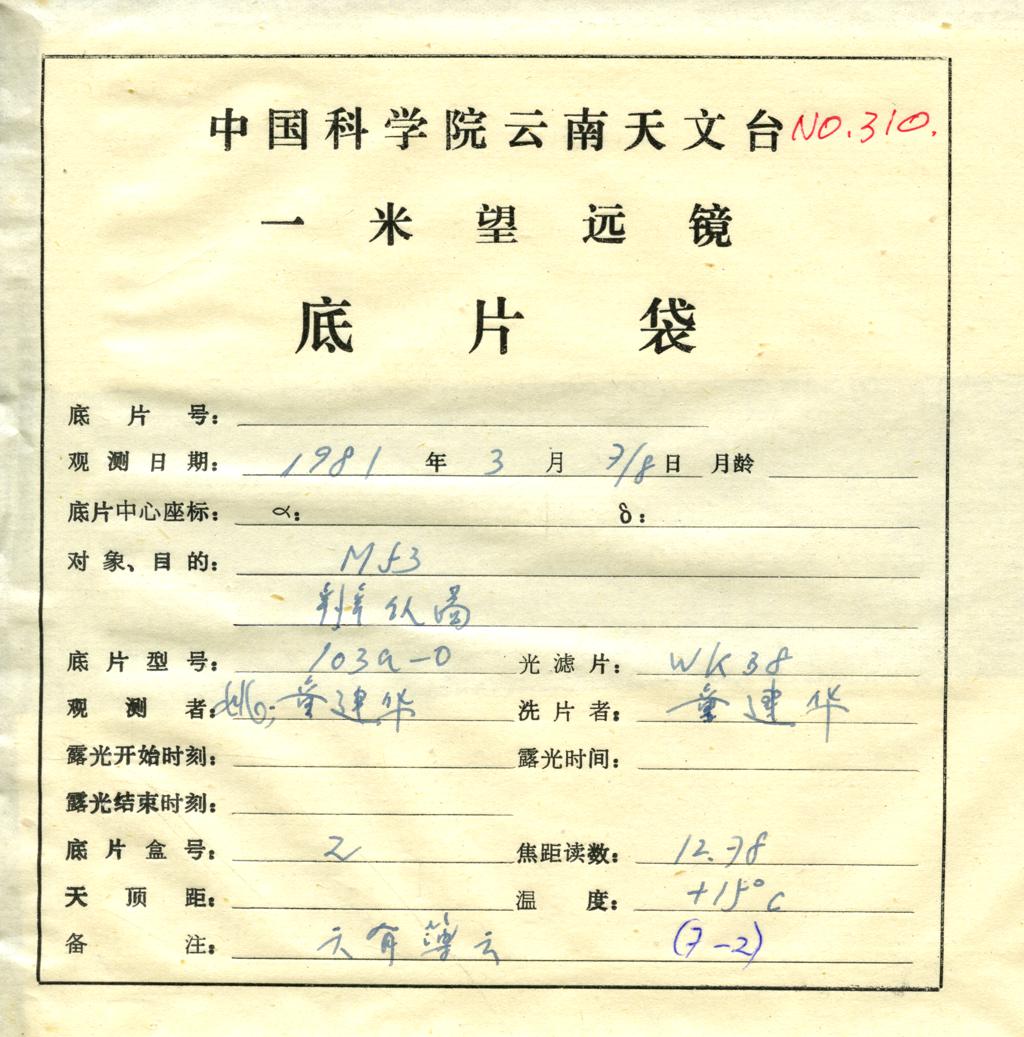 中国科学院云南天文台 NO.310.
一米望远镜
底片袋
底片号:
观测日期: 1981 年 3 月 7/8 日 月龄
底片中心座标: α: δ:
对象、目的: M53
底片型号: 103a-O 光滤片: WK38
观测者: 童建华 洗片者: 童建华
露光开始时刻: 露光时间:
露光结束时刻:
底片盒号: 2 焦距读数: 12.78
天顶距: 温度: +15°C
备注: 天有薄云 (7-2)